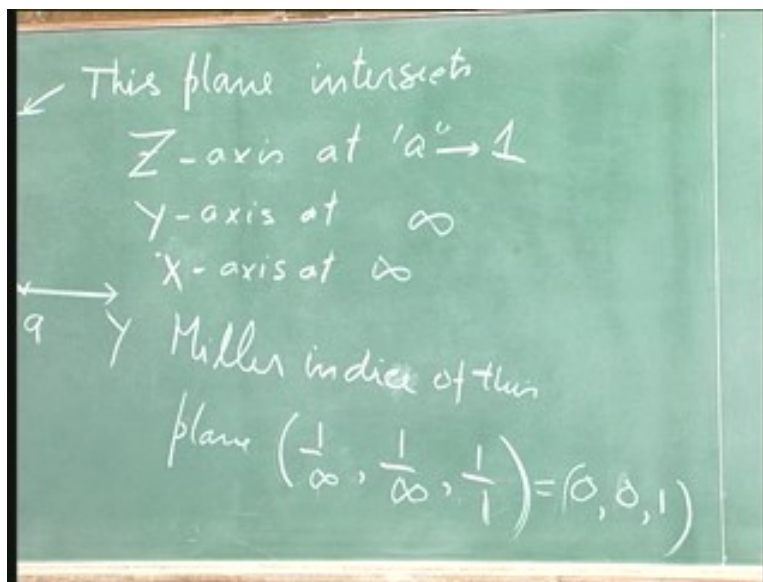 This plane intersects
Z-axis at 'a' → 1
y-axis at ∞
X-axis at ∞
a Y Miller indice of this
plane (1/∞, 1/∞, 1/1) = (0, 0, 1)